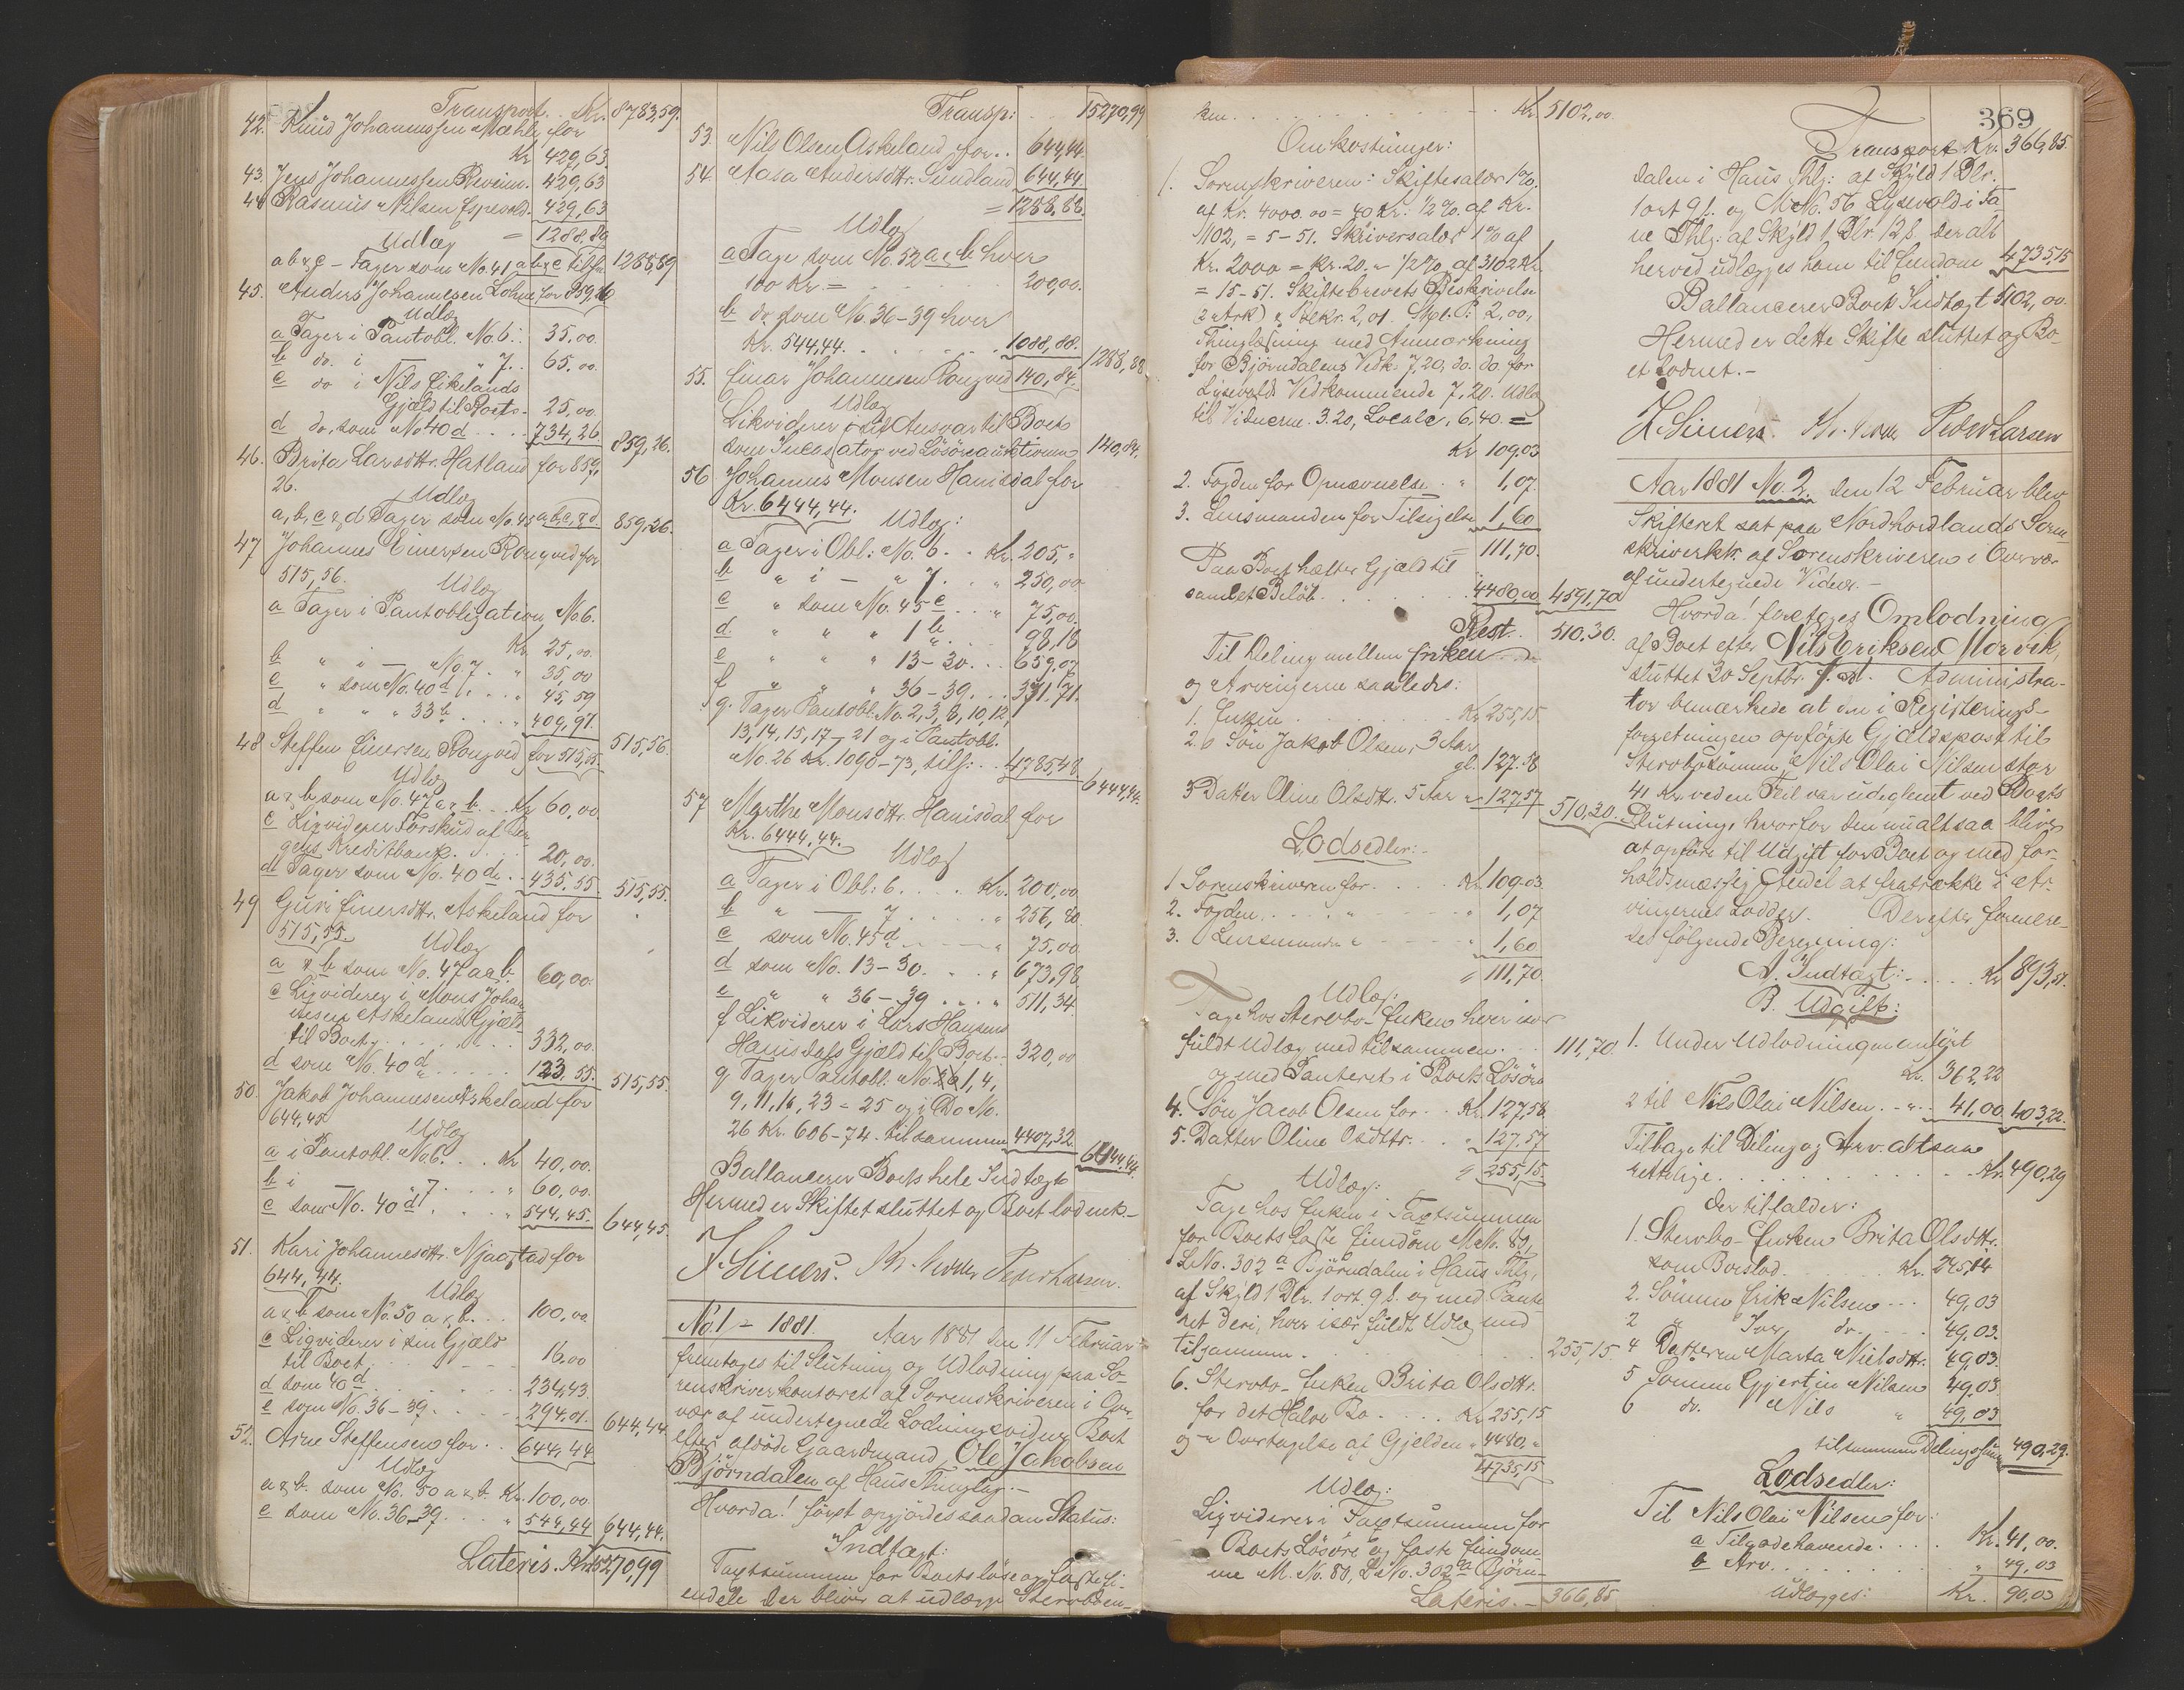 Transport. Kr. 8783,59.
42. Knud Johannessen Mæhle for
Kr 429,63
43. Jens Johannessen 429,63
44 Rasmus Nilsen Espevold. 429,63
Udlæg = 1288,89
a b & c – Tager som No. 41 a b & c tils. 1288,89
45. Anders Johannesen Lohne for 859,26
Udlæg
a Tager i Pantobl. No. 6. 35,00.
b do. i — " 7. 65,00.
c do i Nils Eikelands
Gjæld til Boet. 25,00.
d do. som No 40 d 734,26 859,26.
46. Brita Larsdttr. Hatland for 859,
26. Udlæg
a, b, c & d Tager som No. 45 a, b, c, & d. 859,26.
47 Johannes Einersen Rongved for
515,56. Udlæg
a Tager i Pantobligation No. 6.
Kr 25,00.
b " i — No. 7. " 35,00
c " som No. 40 d. " 45,59
d " " " 33 b. " 409,97. 515,56.
48 Steffen Einersen Rongved for 515,55.
Udlæg
a & b som No. 47 a & b. Kr 60,00.
c Liqviderer Forskud af Ber-
gens Kreditbank. 20,00.
d Tager som No. 40 d. 435,55 515,55.
49 Guri Einersdttr. Askeland for
515,55. Udlæg
a & b som No. 47 a & b. 60,00.
c Liqviderer i Mons Johan-
nesen Askelands Gjæld
til Boet. 332,00.
d som No. 40 d 123,55. 515,55.
50. Jakob Johannesen Askeland for
644,45 Udlæg
a i Pantobl. No 6. Kr 40,00.
b i — " 7. " 60,00.
c som No. 40 d. " 544,45. 644,45.
51. Kari Johannesdttr. Njaastad for
644,44. Udlæg
a & b som No. 50 a & b. 100,00.
c Liqviderer i sin Gjæld
til Boet. 16,00
d som 40 d 234,43.
e som No. 36–39. 294,01. 644,44.
52. Arne Steffensen for 644,44
Udlæg
a & b. som No. 50 a & b. Kr. 100,00.
c som No. 36–39. " 544,44 644,44.
Lateris. Kr. 15270,99
Transp: 15270,99
53. Nils Olsen Askeland for 644,44.
54. Aasa Andersdttr. Sundland 644,44.
= 1288,88.
Udlæg
a Tage som No. 52 a & b hver
100 Kr. = 200,00.
b do som No. 36–39 hver
Kr. 544,44. 1088,88. 1288,88
55. Einar Johannesen Rongved 140,84.
Udlæg
Likviderer i sit Ansvar til Boet
som Incassator ved Lösöreauktionen 140,84.
56 Johannes Monsen Hanisdal for
Kr. 6444,44. Udlæg:
a Tager i Obl: No. 6. Kr. 205,"
b " i — " 7. " 250,00
c " som No. 45 c " 75,00.
d. " " " 1 b. 98,18
e " " " 13–30. 659,07
f " " " 36–39. 371,71.
g. Tager Pantobl. No. 2, 3, 8, 10, 12,
13, 14, 15, 17–21 og i Pantobl.
No. 26 Kr. 1090–73, tils: 4785,48 6444,44.
57 Marthe Monsdttr. Hanisdal for
Kr. 6444,44. Udlæg
a Tager i Obl: 6. Kr. 200,00
b " — 7 " 256,80
c som No. 45 d " 75,00
d som No. 13–30. " 673,98
e " " 36–39 " 511,34.
f Likviderer i Lars Hansens
Hanisdals Gjæld til Boet 320,00
g Tager Pantobl. No. 1, 4,
9, 11, 16, 23–25 og i Do No.
26 Kr. 606–74. tilsammen 4407,32 6444,44.
Ballancerer Boets hele Indtægt
Hermed er Skiftet sluttet og Boet lodnet.–
Peder Larsen.
No. 1 – 1881. Aar 1881 den 11 Februar
fremtoges til Slutning og Udlodning paa So-
renskriverkontoret af Sorenskriveren i Over-
vær af undertegnede Lodningsvidner Boet
efter afdöde Gaardmand Ole Jakobsen
Björndalen af Haus Thinglag.–
Hvorda! först opgjördes saadan Status:
Indtægt:
Taxtsummen for Boets löse og faste Ei-
endele der bliver at udlægge Stervboen-
ken Kr 5102,00
Omkostninger:
1. Sorenskriveren: Skiftesalær 1%.
af Kr. 4000.00 = 40 Kr. ½% af Kr.
1102, = 5–51. Skriversalær 1% af
Kr. 2000 = Kr. 20,– ½% af 3102 Kr.
= 15–51. Skiftebrevets Beskrivelse
Thinglæsning med Anmærkning
for Björndalens Vedk. 7,20, do. do. for
Lysevolds Vedkommende 7,20. Udlæg
til Vidnerne. 3.20, Locale, 6,40. =
Kr 109,03
2. Fogden for Opnævnelse " 1,07.
3. Lensmanden for Tilsigelse 1,60
= 111,70.
Paa Boet hæfter Gjæld til
samlet Belöb 4480,00 4591,70
Rest. 510,30.
Til Deling mellem Enken
og Arvingerne saaledes:
1. Enken Kr 255,15.
2. Sön Jakob Olsen, 3 Aar
gl. 127.58
3 Datter Oline Olsdttr. 5 Aar " 127,57 510,30.
Lodsedler:
1 Sorenskriveren for Kr. 109.03
2. Fogden " " 1,07
3. Lensmanden " " 1,60
" 111,70.
Udlæg:
Tage hos Stervbo-Enken hver især
fuldt Udlæg med tilsammen 111,70
og med Panteret i Boets Lösöre
4. Sön Jacob Olsen for Kr. 127,58
5. Datter Oline Olsdttr. " 127.57
" 255,15.
Udlæg:
Tage hos Enken i Taxtsummen
for Boets faste Eiendom M.No. 80,
LNo. 302 a Björndalen i Haus Thlg,
af Skyld 1 Dlr. 1 ort. 9 s. og med Pante-
ret deri, hver især fuldt Udlæg med
tilsammen. 255,15.
6. Stervbo-Enken Brita Olsdttr.
for det Halve Bo Kr. 255,15
og " Overtagelse af Gjelden " 4480,"
4735,15
Udlæg:
Liqviderer i Taxtsummen for
Boets Lösöre og faste Eiendom-
me M. No. 80, LNo. 302 a Björn-
Lateris.– 366,85
369
Transport Kr. 366,85
dalen i Haus Thlg: af Skyld 1 Dlr.
1 ort 9 s. og MNo. 56 Lysevold i Fa-
ne Thlg: af Skyld 1 Dlr 12 s. der alt
herved udlægges ham til Eiendom 4735,15
Ballancerer Boets Indtægt 5102,00.
Hermed er dette Skifte sluttet og Bo-
et lodnet.–
Peder Larsen
Aar 1881 No. 2. den 12 Februar blev
Skifteret sat paa Nordhordlands Soren-
skriverktr. af Sorenskriveren i Overvær
af undertegnede Vidner.–
Hvorda! foretages Omlodning
af Boet efter Nils Eriksen Morvik,
sluttet 30 Septbr. f. A. Administra-
tor bemærkede at den i Registerings-
forretningen opförte Gjældspost til
Stervbosönnen Nils Olai Nilsen stor
41 Kr. ved en Feil var udeglemt ved Boets
Slutning, hvorfor den nu altsaa bliver
at opföre til Udgift for Boet og med for-
holdsmæssig Andel at fratrække i Ar-
vingernes Lodder. Derefter formere-
des følgende Beregning:
A. Indtægt: Kr 893,51.
B. Udgift:
1. Under Udlodningen anfört
Kr. 362,22
2 til Nils Olai Nilsen " 41,00 403,22.
Tilbage til Deling og Arv altsaa
rettelige Kr. 490,29
der tilfalder:
1. Stervbo-Enken Brita Olsdttr.
som Boeslod Kr. 245,14
2. Sönnen Erik Nilsen 49,03
2 " Iver do. 49,03.
4 Datteren Marta Nielsdttr. 49,03.
5 Sönnen Gjertin Nilsen 49,03.
6 do. Nils " 49,03
tilsammen Delingssum 490,29.
Lodsedler:
Til Nils Olai Nilsen for:
a Tilgodehavende Kr. 41,00.
b Arv " 49,03
udlægges: Kr. 90,03